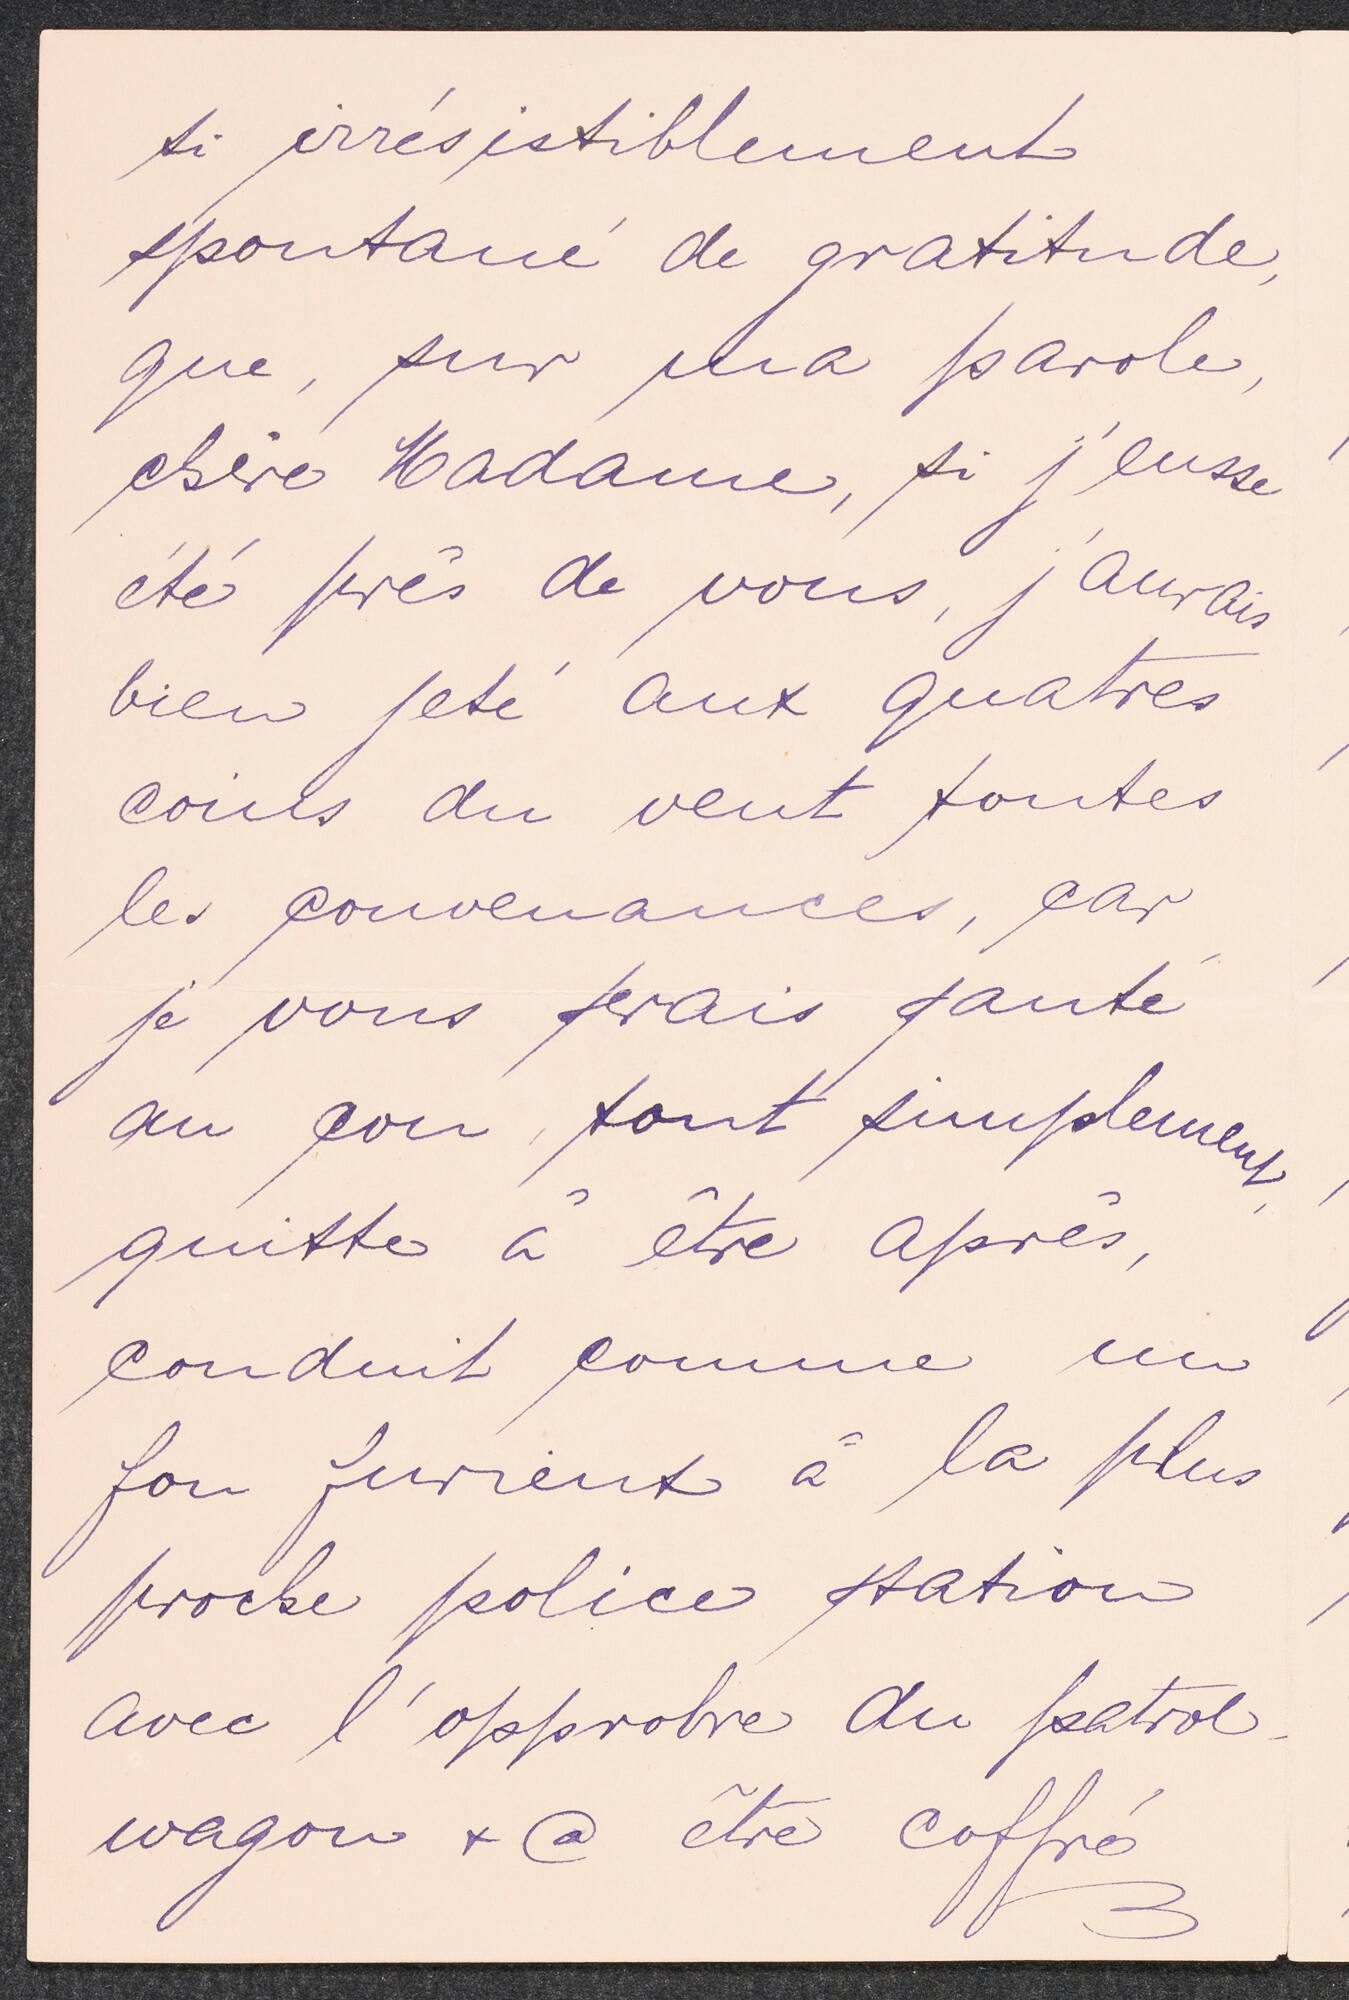 si irrésistiblement
spontané de gratitude,
que, sur ma parole,
chère Madame, si j'eusse
été près de vous, j'aurais
bien jeté aux quatres
coins du vent toutes
les convenances, car
je vous serais sauté
au cou, tout simplement,
quitte à être après,
conduit comme un
fou furieux à la plus
proche police station
avec l'opprobre du patrol-
wagon + @ être coffré